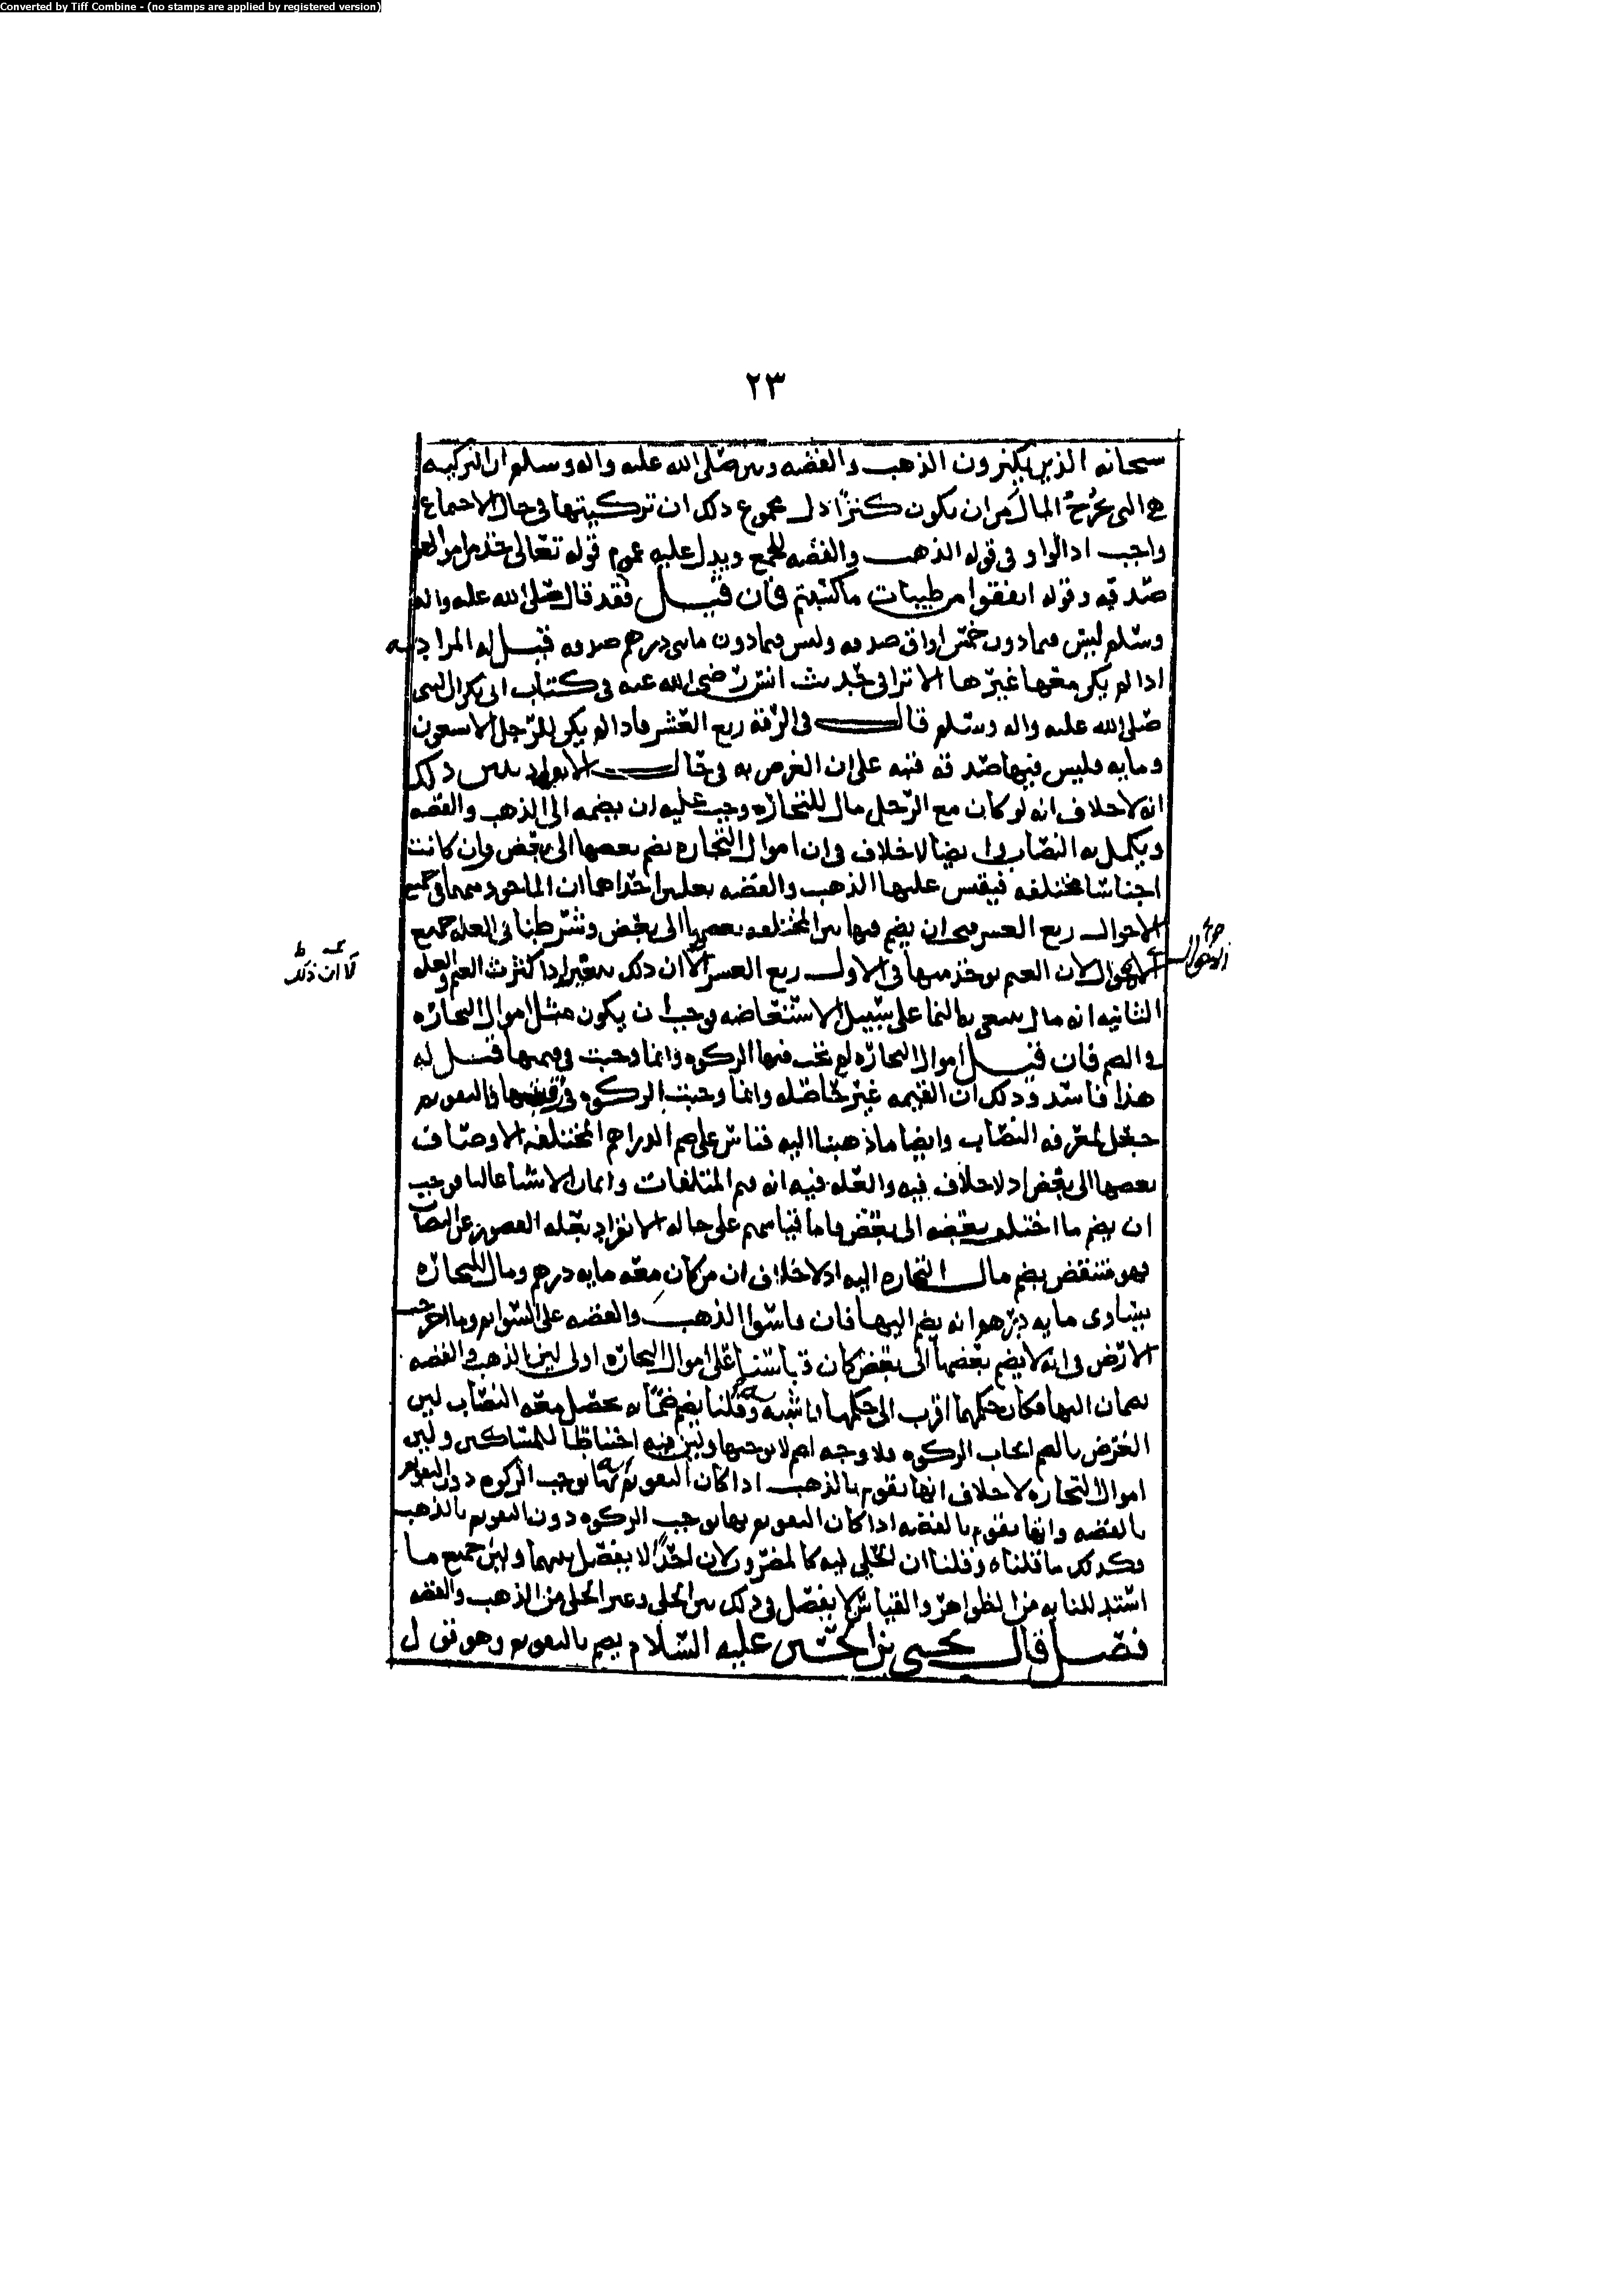 Converted by Tiff Combine - (no stamps are applied by registered version)
٢٣
سبحانه الذين يكنزون الذهب والفضه وبين صلى الله عليه واله وسلم ان التزكيه
هي التي تخرج المال من ان يكون كنزا دل مجموع ذلك ان تزكيتها في حال الاجتماع
واجب اذ الواو في قوله الذهب والفضه للجمع ويدل عليه عموم قوله تعالى خذ من اموالهم
صدقه وقوله انفقوا من طيبات ما كسبتم فان قيل فقد قال صلى الله عليه واله
وسلم ليس فيما دون خمس اواق صدقه وليس فيما دون مائتي درهم صدقه قيل له المراد به
اذا لم يكن معها غيرها الا ترا في حديث انس رضي الله عنه في كتاب ابي بكر ان النبي
صلى الله عليه واله وسلم قال في الرقة ربع العشر فاذا لم يكن للرجل الا تسعون
ومايه فليس فيها صدقه فنبه على ان الغرض به في حال الانفراد يبين ذلك
انه لا خلاف انه لو كان مع الرجل مال للتجاره وجب عليه ان يضمه الى الذهب والفضه
ويكمل به النصاب وايضا لا خلاف في ان اموال التجاره يضم بعضها الى بعض وان كانت
اجناسا مختلفه فيقيس عليها الذهب والفضه بعلتين احداهما ان الماخوذ منهما في جميع
الاحوال ربع العشر فيجب ان يضم فيها بين المختلف بعضها الى بعض وشرطنا في العله جميع
الاحوال لان الغنم يوخذ منها في الاول ربع العشر الا ان ذلك يتغير اذا كثرت الغنم والعله
الاحوال
الا ان ذلك
الثانيه انه مال يبتغى به النما على سبيل الاستعاضه فوجب ان يكون مثل اموال التجاره
في الضم فان قيل اموال التجاره لم تجب فيها الزكوه وانما وجبت في قيمتها قيل له
هذا فاسد وذلك ان القيمه غير حاصله وانما وجبت الزكوه في والتقويم
جعل لمعرفه النصاب وايضا ما ذهبنا اليه قياس على ضم الدراهم المختلفه الاوصاف
بعضها الى بعض اذ لا خلاف فيه والعله فيه انه قيم المتلفات واثمان الاشيا غالبا فوجب
ان يضم ما اختلف بعضه الى بعض فاما قياسهم على حاله الانفراد بعله القصور عن النصاب
فهو منتقض بضم مال التجاره اليه اذ لا خلاف ان من كان معه مايه درهم ومال للتجاره
يساوى مايه درهم انه يضم اليها فان قاسوا الذهب والفضه على السوايم وما اخرجت
الارض في انه لا يضم بعضها الى بعض كان قياسنا على اموال التجاره اولى لان الذهب والفضه
يضمان اليها فكان حكمهما اقرب الى حكمها اذا شبه وقلنا يضم ضما به يحصل معه النصاب لان
الغرض بالضم ايجاب الزكوه فلا وجه لضم لا يوجبها ولان فيه احتياطا للمساكين ولان
اموال التجاره لا خلاف انها تقوم بالذهب اذا كان التقويم به يوجب الزكوه دون التقويم
بالفضه وانها تقوم بالفضه اذا كان التقويم بها يوجب الزكوه دون التقويم بالذهب
فكذلك ما قلناه وقلنا ان الحلي فيه كالمضروب لان احدا لا يفصل بينهما ولان جميع ما
استدللنا به من الظواهر والقياس لا يفصل في ذلك بين الحلي وغير الحلي من الذهب والفضه
فصل قال يحيى بن الحسين عليه السلام يضم بالتقويم وهو قول